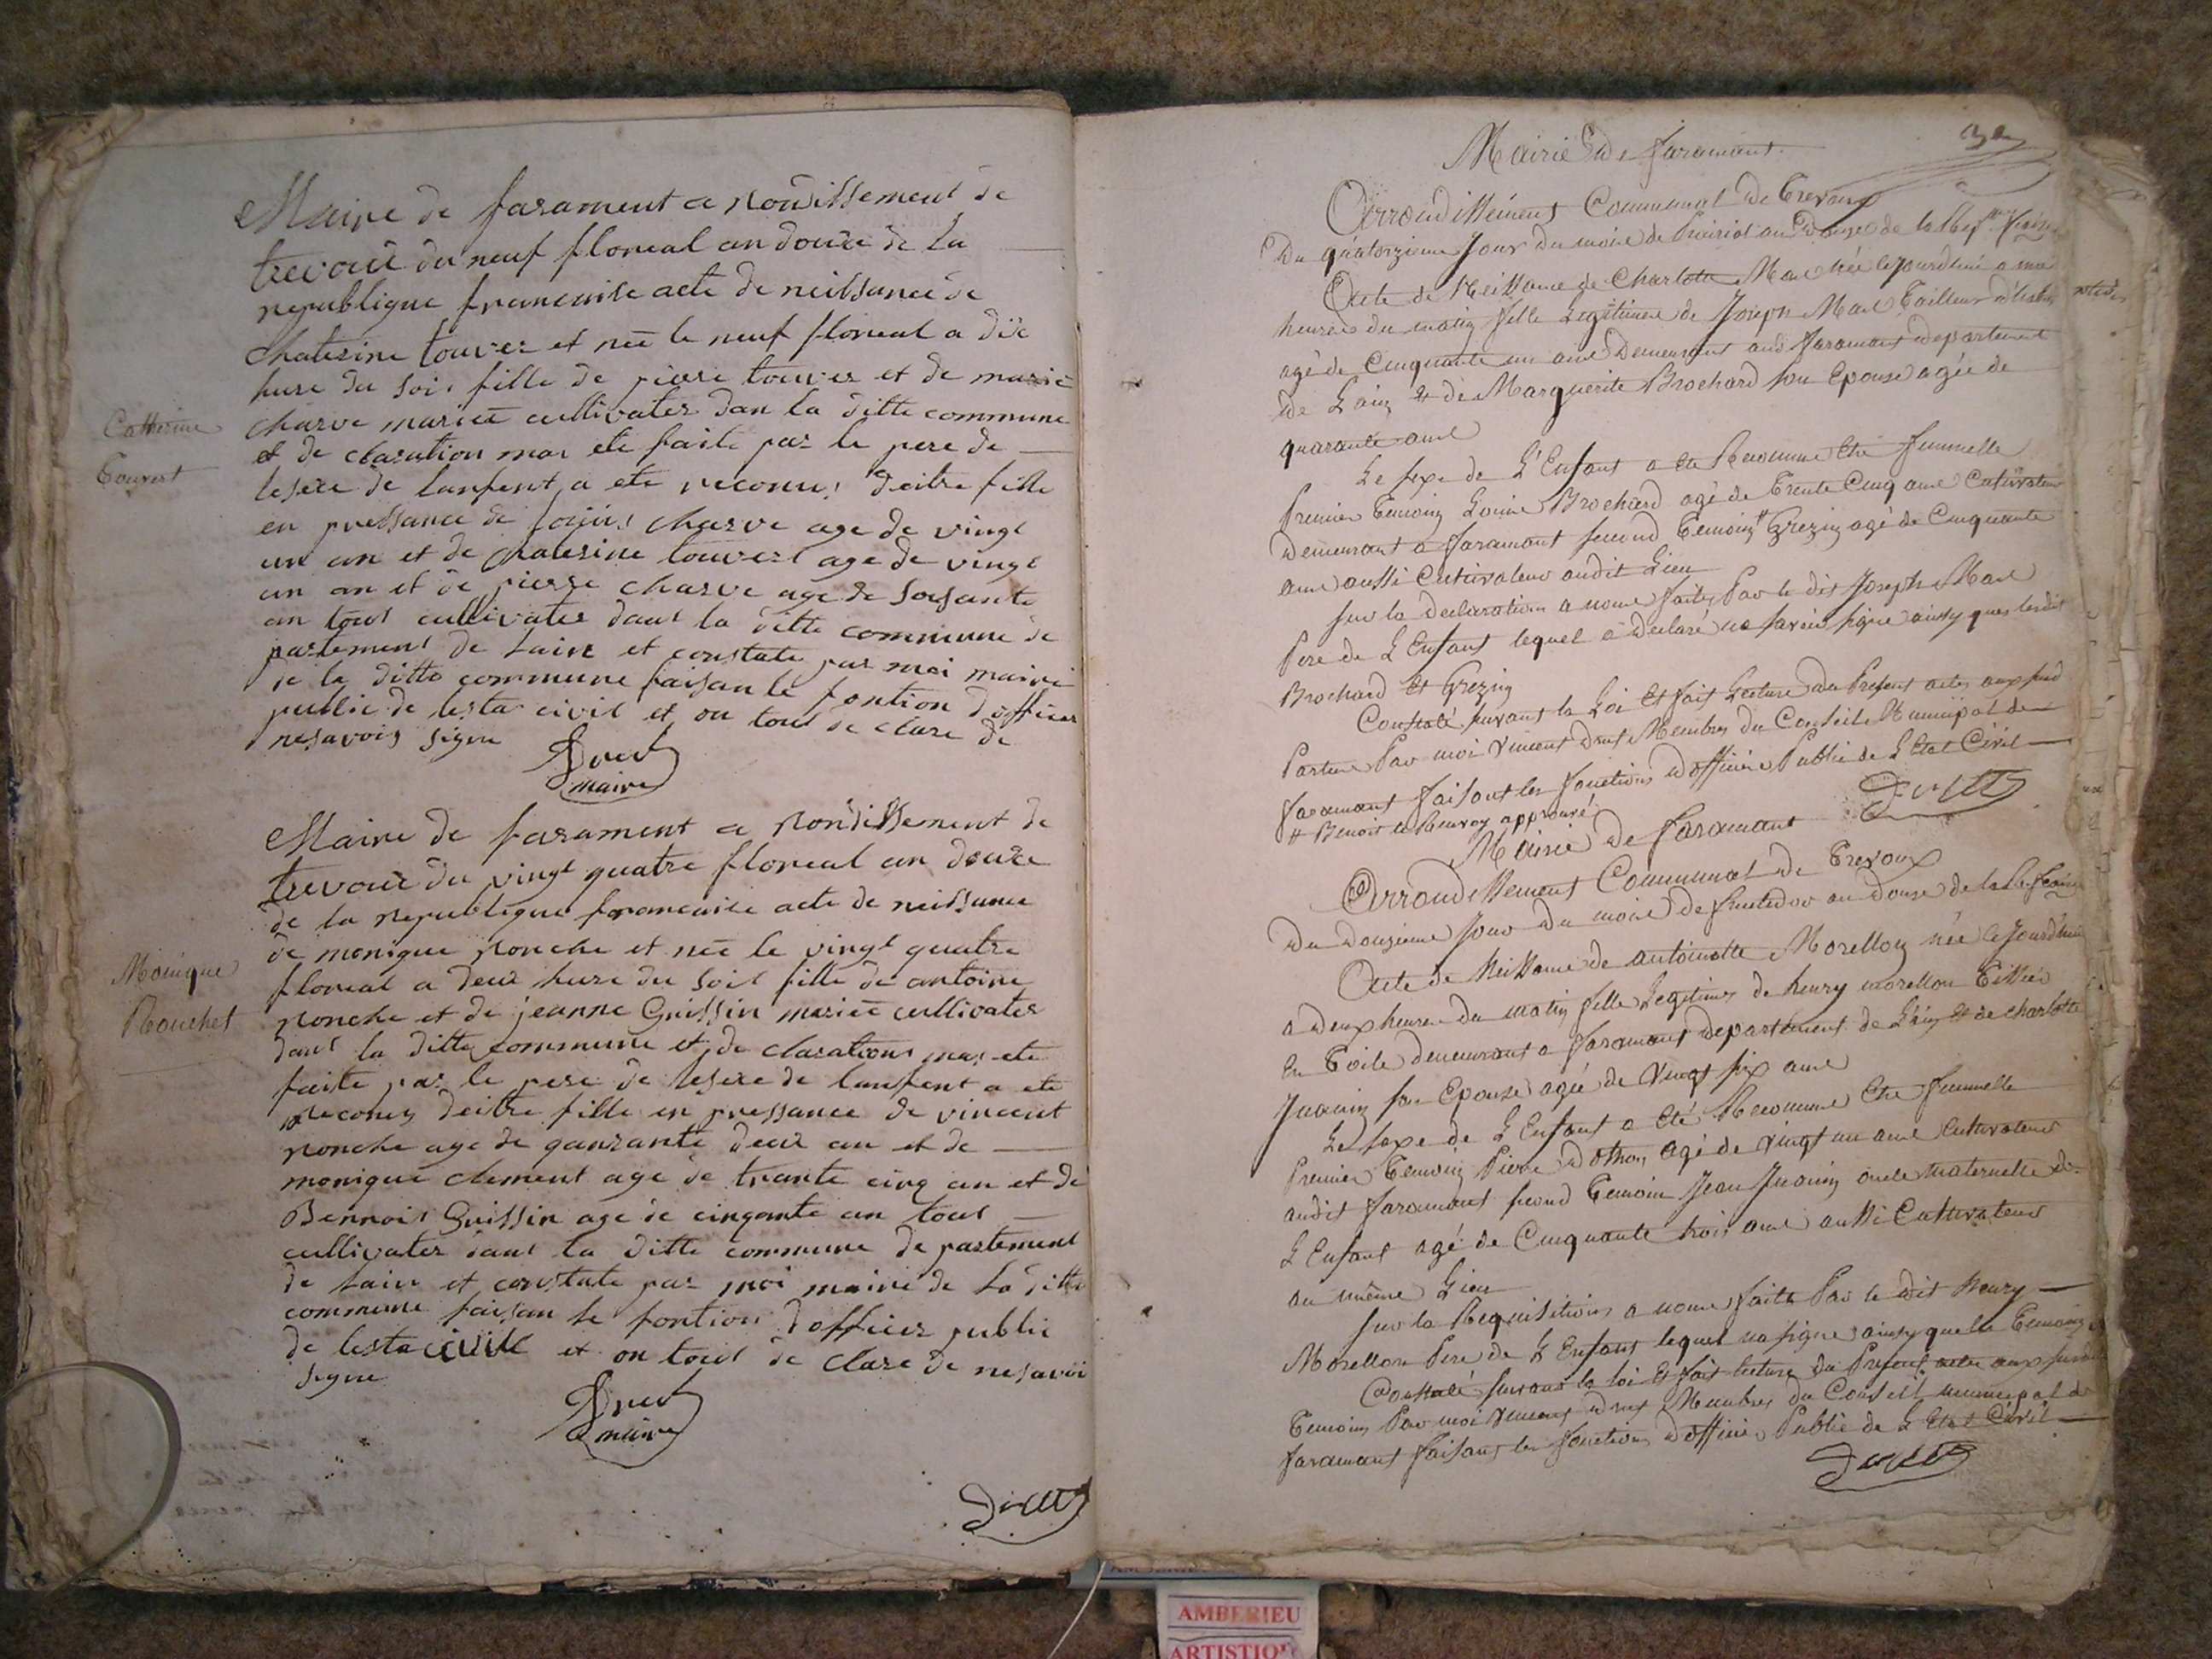 Maire de farament a Rondissement de
trevoux du neuf floreal an douze de la
republique francaise acte de neissance de
Chatesine touver et née le neuf floreal a dix
hure du soir fille de pierre touver et de marie
charve mariée cultivater dan la ditte commune
et de claration mas ete faite par le pere de
lesexe de lanfent a ete reconu, deitre fille
en pressance de charve age de vingt
un an et de Chatesine touvert age de vingt
un an et de pierre charve age de soisante
an tout cultivater dans la ditte commune de
partement de lain et constate par moi maire
de la ditte commune faisan le fontion d officier
public de lesta civil et on tout de clare de
nesavoir signe
Druet
maire
Catherine
Touvert
Maire de farament a Rondissement de
trevoux du vingt quatre floreal an douze
de la republique francaise acte de neissance
de monique Ronche et née le vingt quatre
floreal a deux hure du soir fille de antoine
Ronche et de jeanne Guissin mariée cultivater
dans la ditte commune et de claration mas ete
faite par le pere de lesexe de lanfent a ete
reconu deitre fille en pressance de vincent
Ronche age de garante deux an et de
monique clement age de trante cinq an et de
Bennoit Guissin age de cinqante an tout
cultivater dans la ditte commune de partement
de lain et constate par moi maire de la ditte
commune faisan le fontion d officier public
de lesta civile et on tout de clare de nesavoir
signe
Druet
maire
Monique
Rouchet
Mairie de faramant
Arrondissement Communal de Trevoux
Du quatorzieme Jour du mois de Prairial an Douze de la Rep.
Acte de Neissance de Charlotte née cejourdhui a
heures du matin fille Legitime de Joseph Tailleur
agé de Cinquante un ans Demeurant audit faramant departement
de Lain et de Marguerite Brochard son Epouse agée de
quarante ans
Le sexe de L'Enfant a été Reconnu Etre femmelle
Premier Temoin Brochard agé de Trente Cinq ans Cultivateur
Demeurant a faramant second Temoin # Grezin agé de Cinquante
ans aussi Cultivateur audit Lieu
sur la declaration a nous faite Par le dit Joseph
Pere de L'Enfant lequel a declaré ne savoir signe ainsy que lesdit
Brochard et Grezin
Constaté suivant la Loi et fait Lecture du Present acte aux
Parties Par moi Vincent Druet Membre du Conseil Municipal de
faramant faisant les fonctions d'officier Public de L'Etat Civil
# Benoit approuvé
Druet
Mairie de faramant
Arrondissement Communal de Trevoux
Du Douzieme Jour du mois de fructidor an Douze de la Rep.
Acte de Neissance de antoinette Morellon née cejourdhui
a deux heures du matin fille Legitime de henry morellon Tissier
en Toile demeurant a faramant departement de L'ain et de charlotte
Juanin son Epouse agée de vingt six ans
Le sexe de L'Enfant a Eté Reconnu Etre femmelle
Premier Temoin Pierre agé de vingt un ans Cultivateur
audit faramant second Temoin Jean Juanin oncle maternelle de
L'Enfant agé de Cinquante trois ans aussi Cultivateur
au même Lieu
sur la Requisition a nous faite Par le dit henry
Morellon Pere de L'Enfant lequel na signe ainsy que les Temoins
Constaté suivant la loi et fait lecture du Present acte aux
Temoins Par moi Vincent Druet Membre du Conseil municipal de
faramant faisant les fonctions d'officier Public de L'Etat Civil
Druet
Druet
AMBERIEU